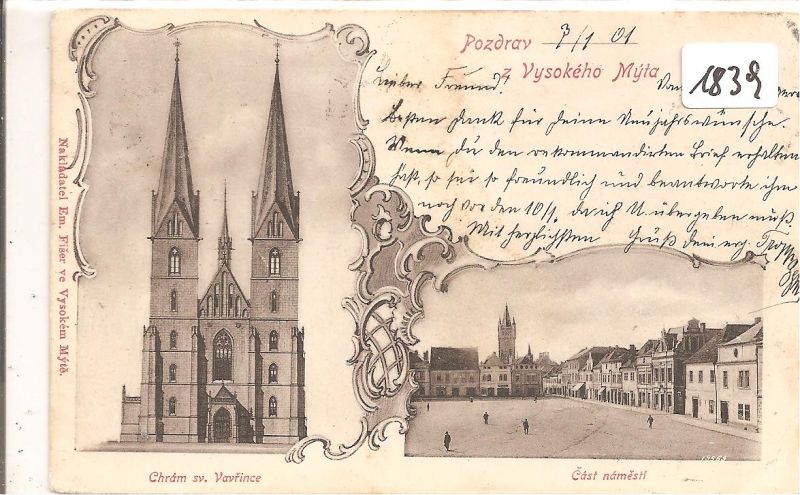 Pozdrav 7/1 01
z Vysokého Mýta
1839
Lieber Freund!
Besten Dank für deine Neujahrswünsche.
Wenn du den rekommandirten Brief erhalten
hast, so sei so freundlich und beantworte ihn
noch vor den 10/1. da ich U. übergeben muß.
Mit herzlichsten Gruß dein erg.
Nakladatel Em. Fišer ve Vysokém Mýtě.
Chrám sv. Vavřince
Část náměstí